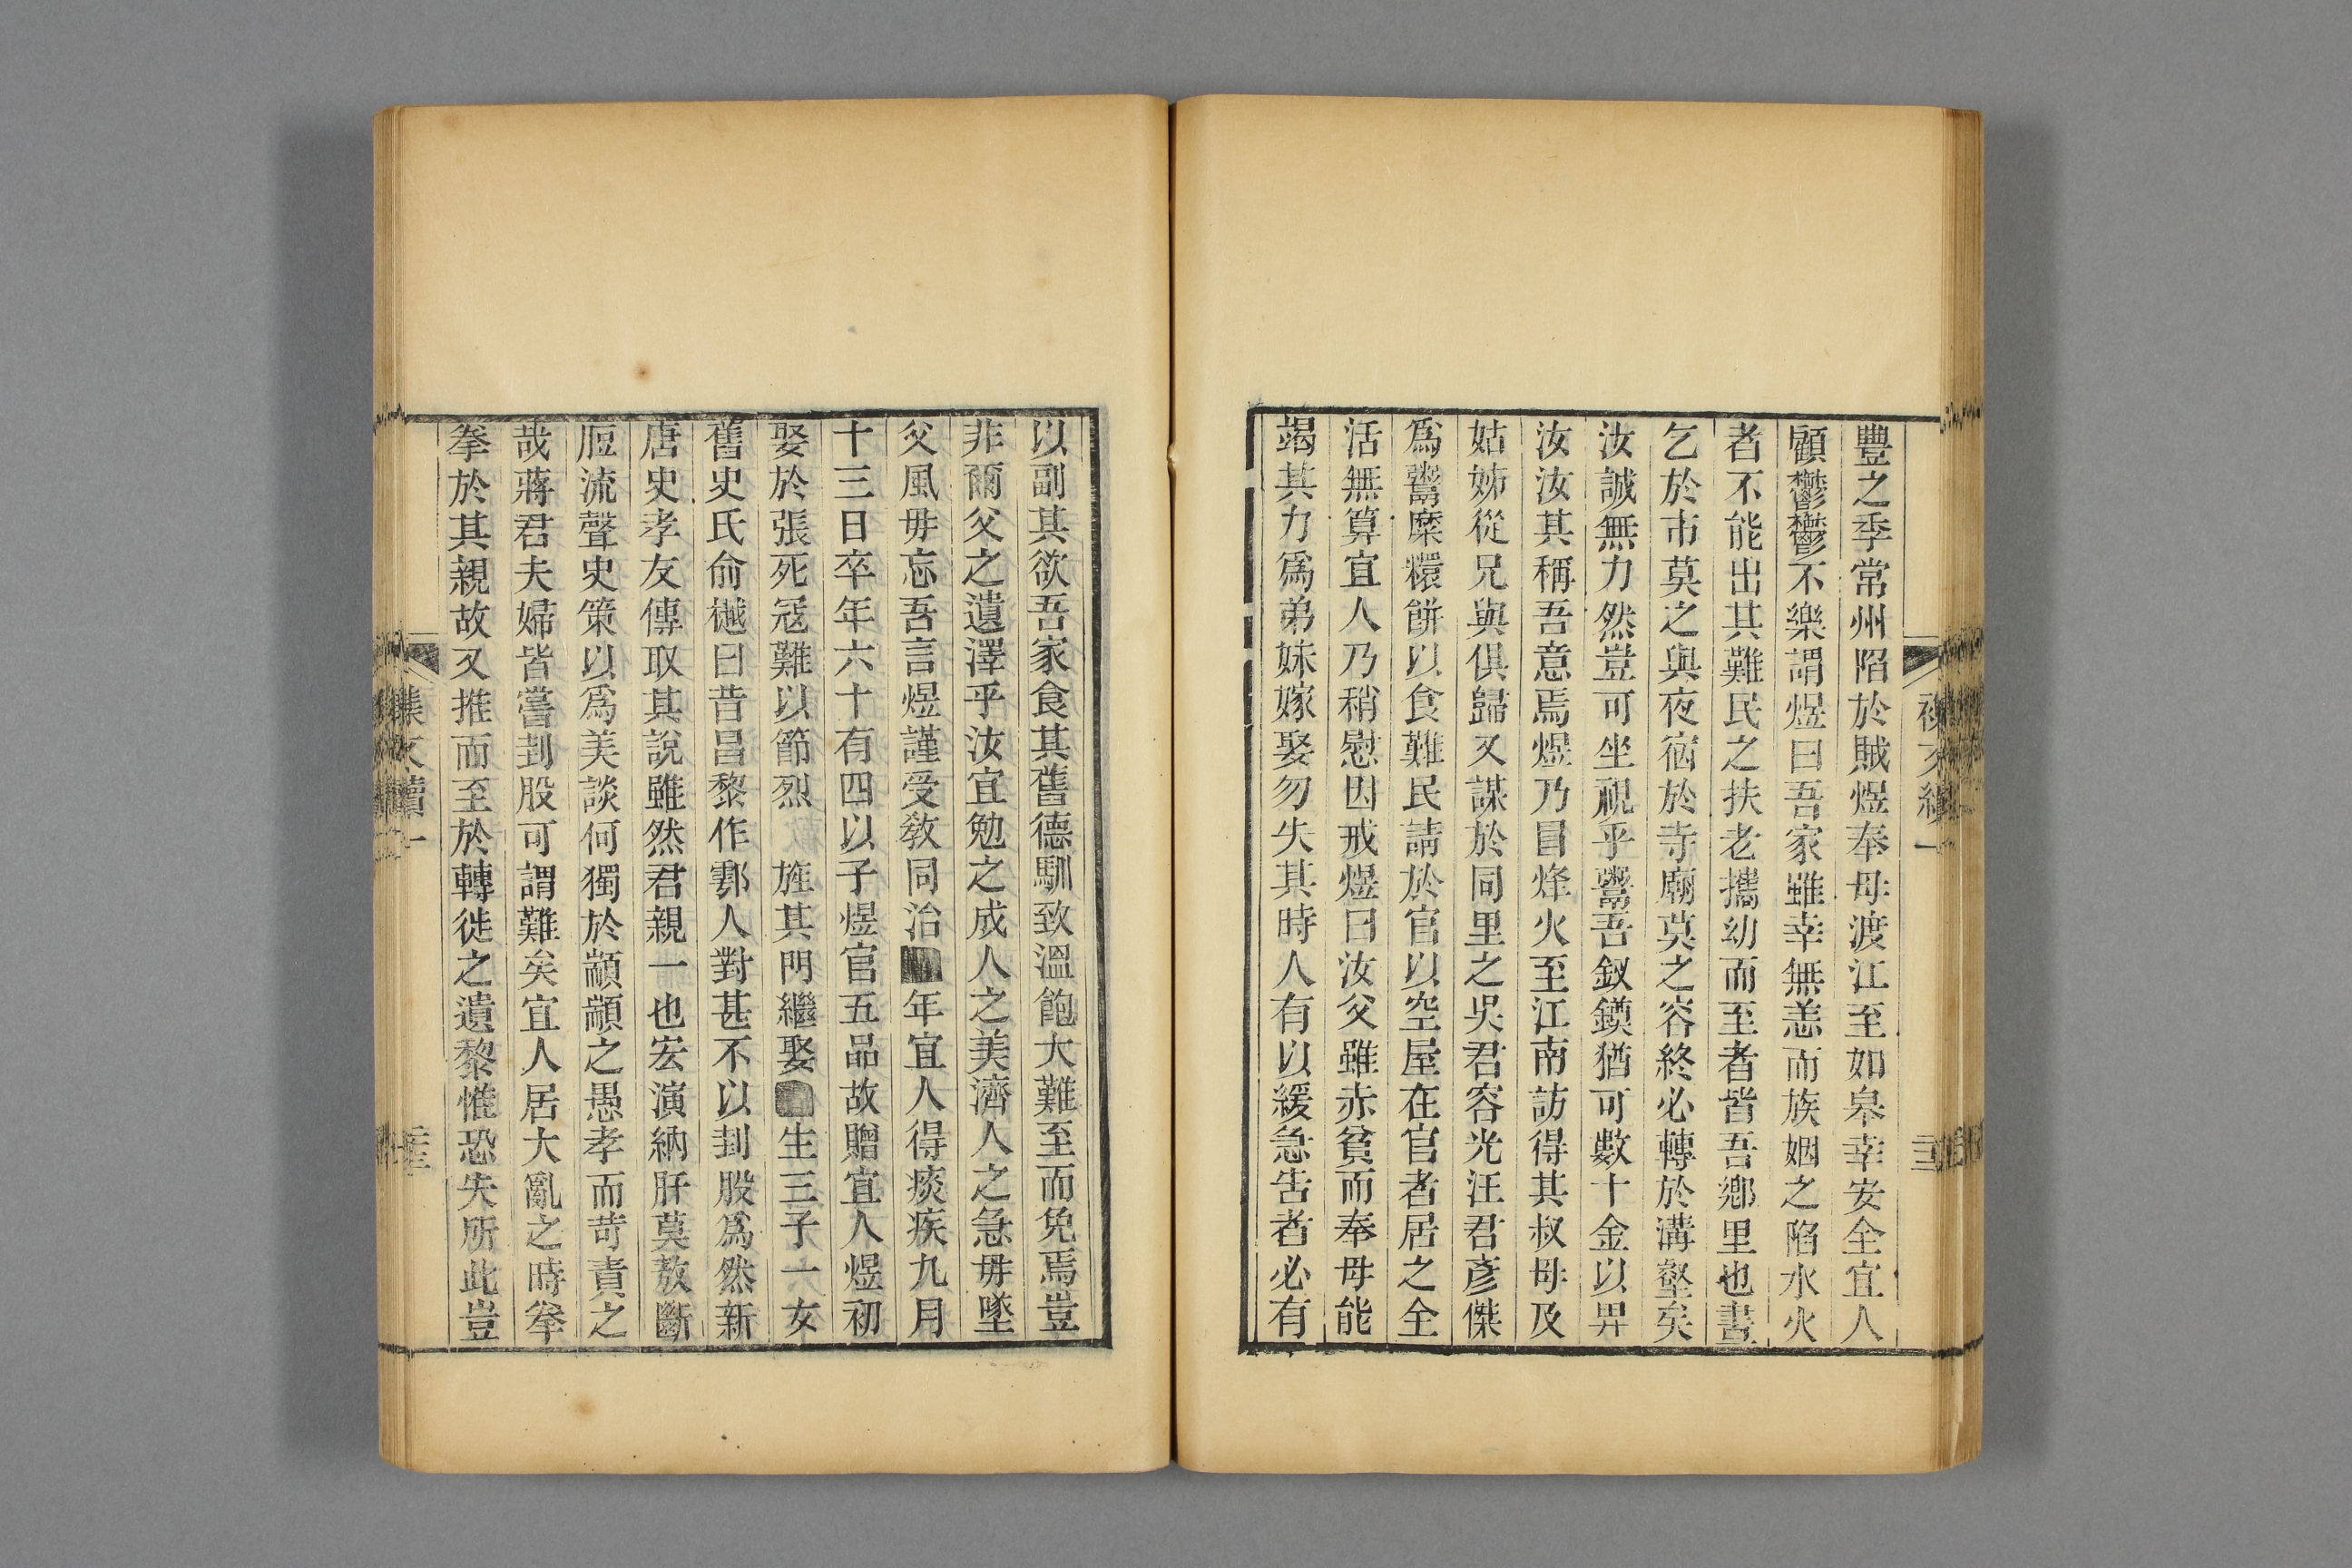 豐之季常州陷於賊煜奉母渡江至如皋幸安全宜人
顧鬱鬱不樂謂煜曰吾家雖幸無恙而族姻之陷水火
者不能出其難民之扶老攜幼而至者皆吾鄉里也晝
乞於市莫之與夜宿於寺廟莫之容終必轉於溝壑矣
汝誠無力然豈可坐視乎鬻吾釵鐶猶可數十金以畀
汝汝其稱吾意焉煜乃冒烽火至江南訪得其叔母及
姑姊從兄與俱歸又謀於同里之吳君容光汪君彥傑
爲鬻糜糫餅以食難民請於官以空屋在官者居之全
活無算宜人乃稍慰因戒煜曰汝父雖赤貧而奉母能
竭其力爲弟妹嫁娶勿失其時人有以緩急告者必有
以副其欲吾家食其舊德馴致溫飽大難至而免焉豈
非爾父之遺澤乎汝宜勉之成人之美濟人之急毋墜
父風毋忘吾言煜謹受敎同治年宜人得痰疾九月
十三日卒年六十有四以子煜官五品故贈宜人煜初
娶於張死冦難以節烈 旌其門繼娶生三子一女
舊史氏俞樾曰昔昌黎作鄠人對甚不以刲股爲然新
唐史孝友傳取其說雖然君親一也宏演納肝莫敖斷
脰流聲史策以爲美談何獨於顓顓之愚孝而苛責之
哉蔣君夫婦皆嘗刲股可謂難矣宜人居大亂之時拳
拳於其親故又推而至於轉徙之遺黎惟恐失所此豈
襍文續一